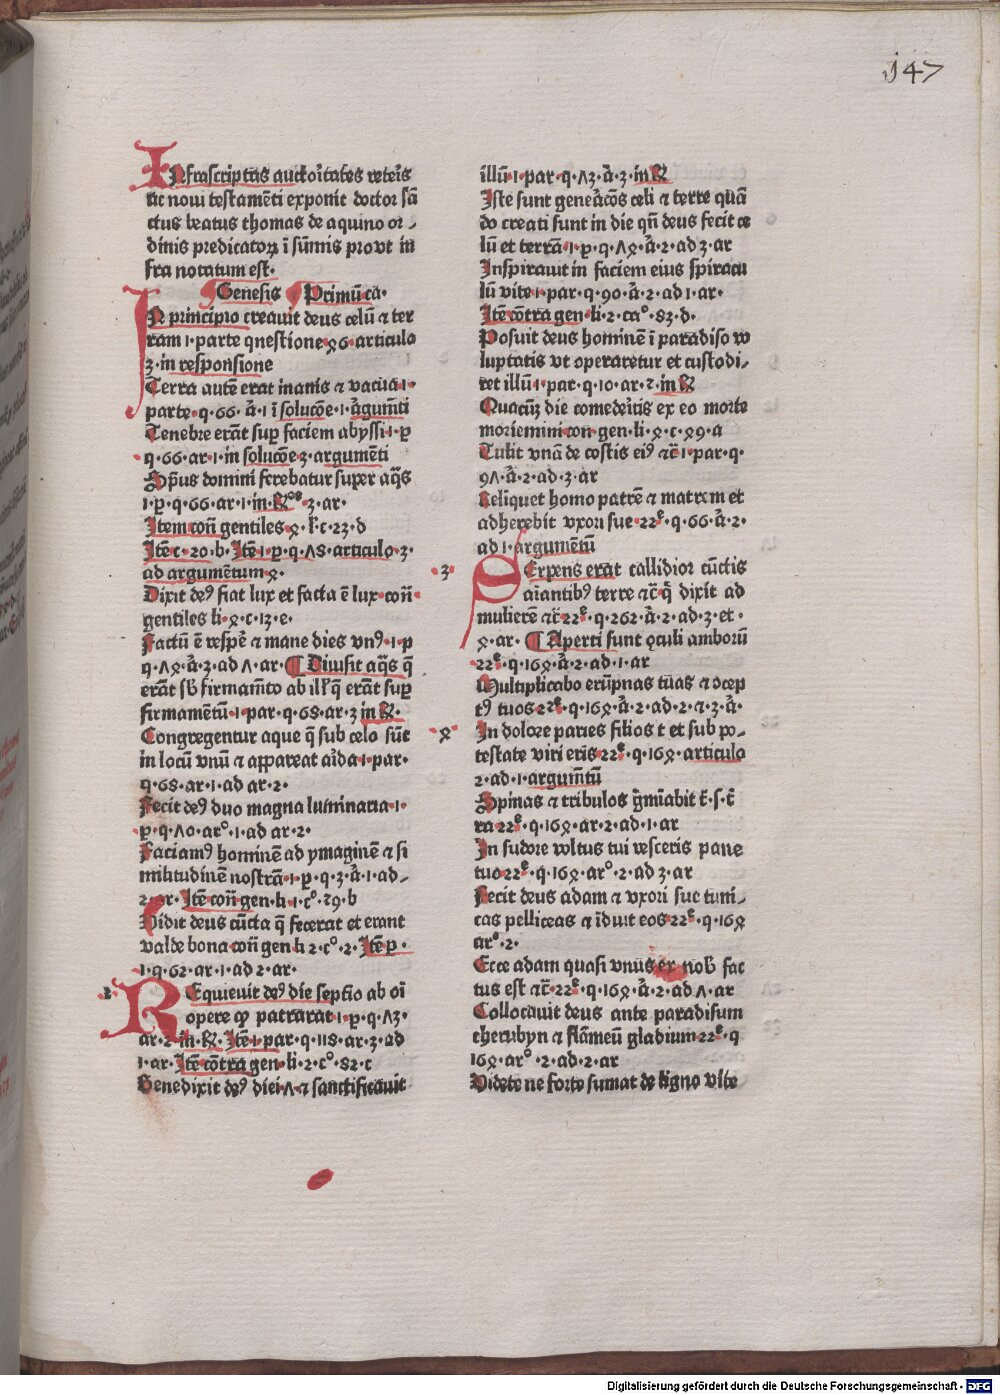 147
INfrascriptas auctoꝛ̄itates veteris
ac noui testamēti exponit doctor sā
ctus beatus thomas de aquino or-
dinis predicatoꝝ ī sūmis prout in
fra notatum est.
Genesis Primū ca.
IN principio creauit deus celū ⁊ ter
ram .1. parte questione ꝝ6 articulo
3. in responsione
Terra autē erat inanis ⁊ vacua .1.
parte .q. 66. ā. 1 ī solucōe .1. āgumēti
Tenebre erāt suꝑ faciem abyssi .1. p̄
q. 66. ar. 1. in solucōe 2. argumēti
Sp̄us domini ferebatur super aq̄s
1. p̄. q. 66. ar. 1. in. ꝶ. 3. ar.
Item con̄ gentiles ꝝ. l. c. 23. d
Itē c. 20. b. Itē 1. p̄. q. ʌ8. articulo .3.
ad argumentum ꝝ.
Dixit deꝰ fiat lux et facta ē lux. con̄
gentiles li. ꝝ. c. 12. e.
Factū ē vesꝑe ⁊ mane dies vnꝰ. 1. p
q. ʌꝝ. ā. 3. ad ʌ. ar. ¶ Diuisit aq̄s q̄
erāt sb̄ firmamēto ab ill̄ q̄ erāt suꝑ
firmamētū. 1. par. q. 68. ar. 3 in ꝶ.
Congregentur aque q̄ sub celo sūt
in locū vnū ⁊ appareat arida .1. par.
q. 68. ar. 1. ad ar. 2.
Fecit deꝰ duo magna luminaria .1.
p̄. q. ʌ0. arº. 1. ad ar. 2.
Faciamꝰ hominē ad ymaginē ⁊ si
militudinē nostrā. 1. p̄. q. 3. ā. 1. ad-
2. ar. Itē con̄ gen. li 1. cº. 29. b
Vidit deus cūcta q̄ fecerat et erant
valde bona con̄ gen li 2. cº. 2. Itē p̄.
1. q. 62. ar. 1. ad 2. ar.
2
REquieuit deꝰ die septīo ab oī
opere qꝫ patrarat .1. p̄. q. ʌ3.
ar. 2. in. ꝶ. Itē 1. par. q. 118. ar. 3. ad
1. ar. Itē cōtra gen. li. 2. cº. 82. c
Benedixit deꝰ diei .ʌ. ⁊ sanctificauit
illū. 1. par. q. ʌ3. ā. 3. in ꝶ
Iste sunt gene͛acōs celi ⁊ terre quā
do creati sunt in die qn̄ deus fecit ce
lū et terrā. 1. p̄. q. ʌꝝ. ā. 2. ad 3. ar
Inspirauit in faciem eius spiracu
lū vite .1. par. q. 90. ā. 2. ad 1. ar.
Itē cōtra gen. li. 2. caº. 83. d.
Posuit deus hominē ī paradiso vo
luptatis vt operaretur et custodi-
ret illū. 1. par. q. 10. ar. 2. in ꝶ
Quacūꝫ die comede͛itis ex eo morte
moriemini con. gen. li. ꝝ. c. ꝝ9. a
Tulit vnā de costis eiꝰ ⁊c̄ 1. par. q.
9ʌ. ā. 2. ad. 3. ar
Relīquet homo patrē ⁊ matrem et
adherebit vxori sue .22ᵉ. q. 66. ā. 2.
ad 1. argumētū
3
SErpens erat callidior cūctis
aīantibꝰ terre ⁊c̄ q̄ dixit ad
mulierē ⁊c̄ 22ᵉ. q. 262. ā. 2. ad. 3. et.
ꝝ. ar. ¶ Aperti sunt oculi amborū
22ᵉ. q. 16ꝝ. ā. 2. ad. 1. ar
Multiplicabo erūpnas tuas ⁊ ↄcep
tꝰ tuos 22ᵉ. q. 16ꝝ. ā. 2. ad. 2. ⁊. 3. ā.
ꝝ
In dolore paries filios t et sub po-
testate viri eris 22ᵉ. q. 16ꝝ. articulo
2. ad. 1. argumētū
Spinas ⁊ tribulos ge͛minabit t̄. s. t̄
ra 22ᵉ. q. 16ꝝ. ar. 2. ad. 1. ar
In sudore voltus tui vesceris pane
tuo 22ᵉ. q. 16ꝝ. arº. 2. ad 3. ar
Fecit deus adam ⁊ vxori sue tuni-
cas pelliceas ⁊ īduit eos 22ᵉ. q. 16ꝝ
arº. 2.
Ecce adam quasi vnus ex nob̄ fac
tus est ⁊c̄. 22ᵉ. q. 16ꝝ. ā. 2. ad ʌ. ar
Collocauit deus ante paradisum
cherubyn ⁊ flāmeū gladium 22ᵉ. q
16ꝝ. arº. 2. ad. 2. ar
Videte ne forte sumat de ligno vite
Digitalisierung gefördert durch die Deutsche Forschungsgemeinschaft - DFG